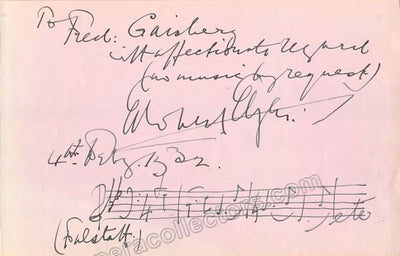 To Fred: Gaisberg
with affectionate regard
(no music by request)
Edward Elgar
4th Feby. 1932
etc
(Falstaff)
operacollectors.com